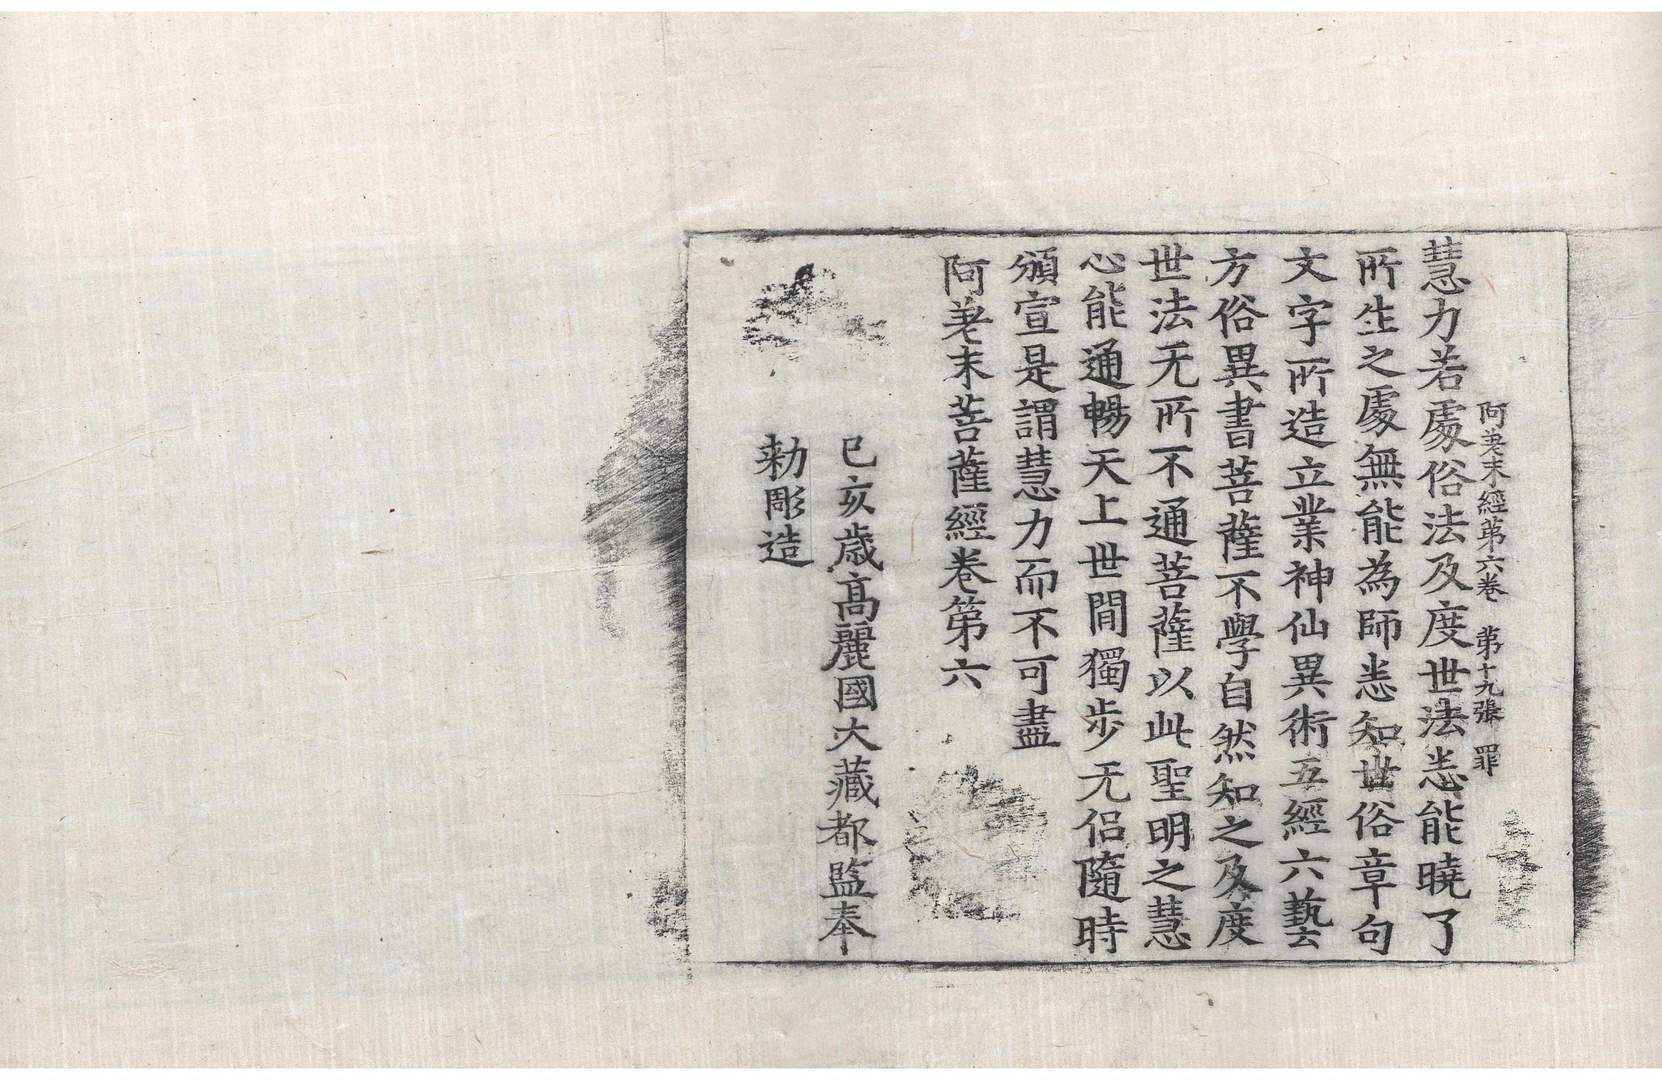 阿差末經第六卷 第十九張 罪
慧力若處俗法及度世法悉能曉了
所生之處無能為師悉知世俗章句
文字所造立業神仙異術五經六藝
方俗異書菩薩不學自然知之及度
世法无所不通菩薩以此聖明之慧
心能通暢天上世間獨步无侶隨時
頒宣是謂慧力而不可盡
阿差末菩薩經卷第六
己亥歲高麗國大藏都監奉
勅彫造